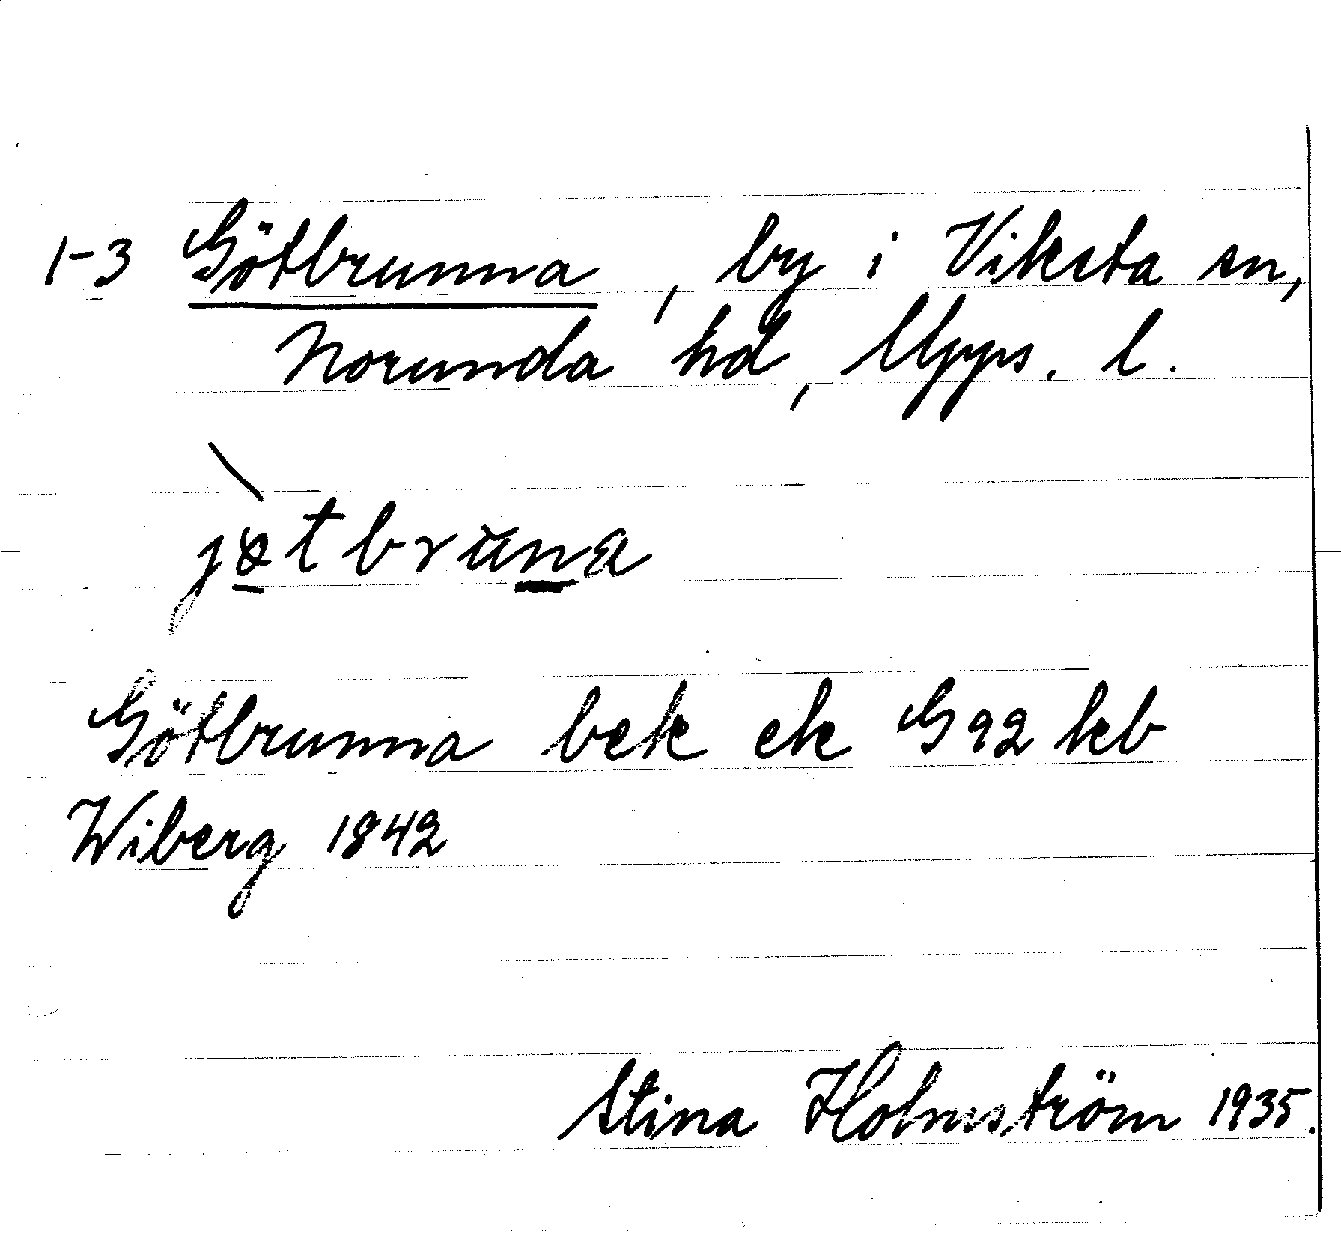 1-3 Götbrunna, by i Viksta sn,
Norunda hd, Upps. l.
jøtbruna
Götbrunna bek ek G92 kb
Wiberg 1842
Stina Holmström 1935.